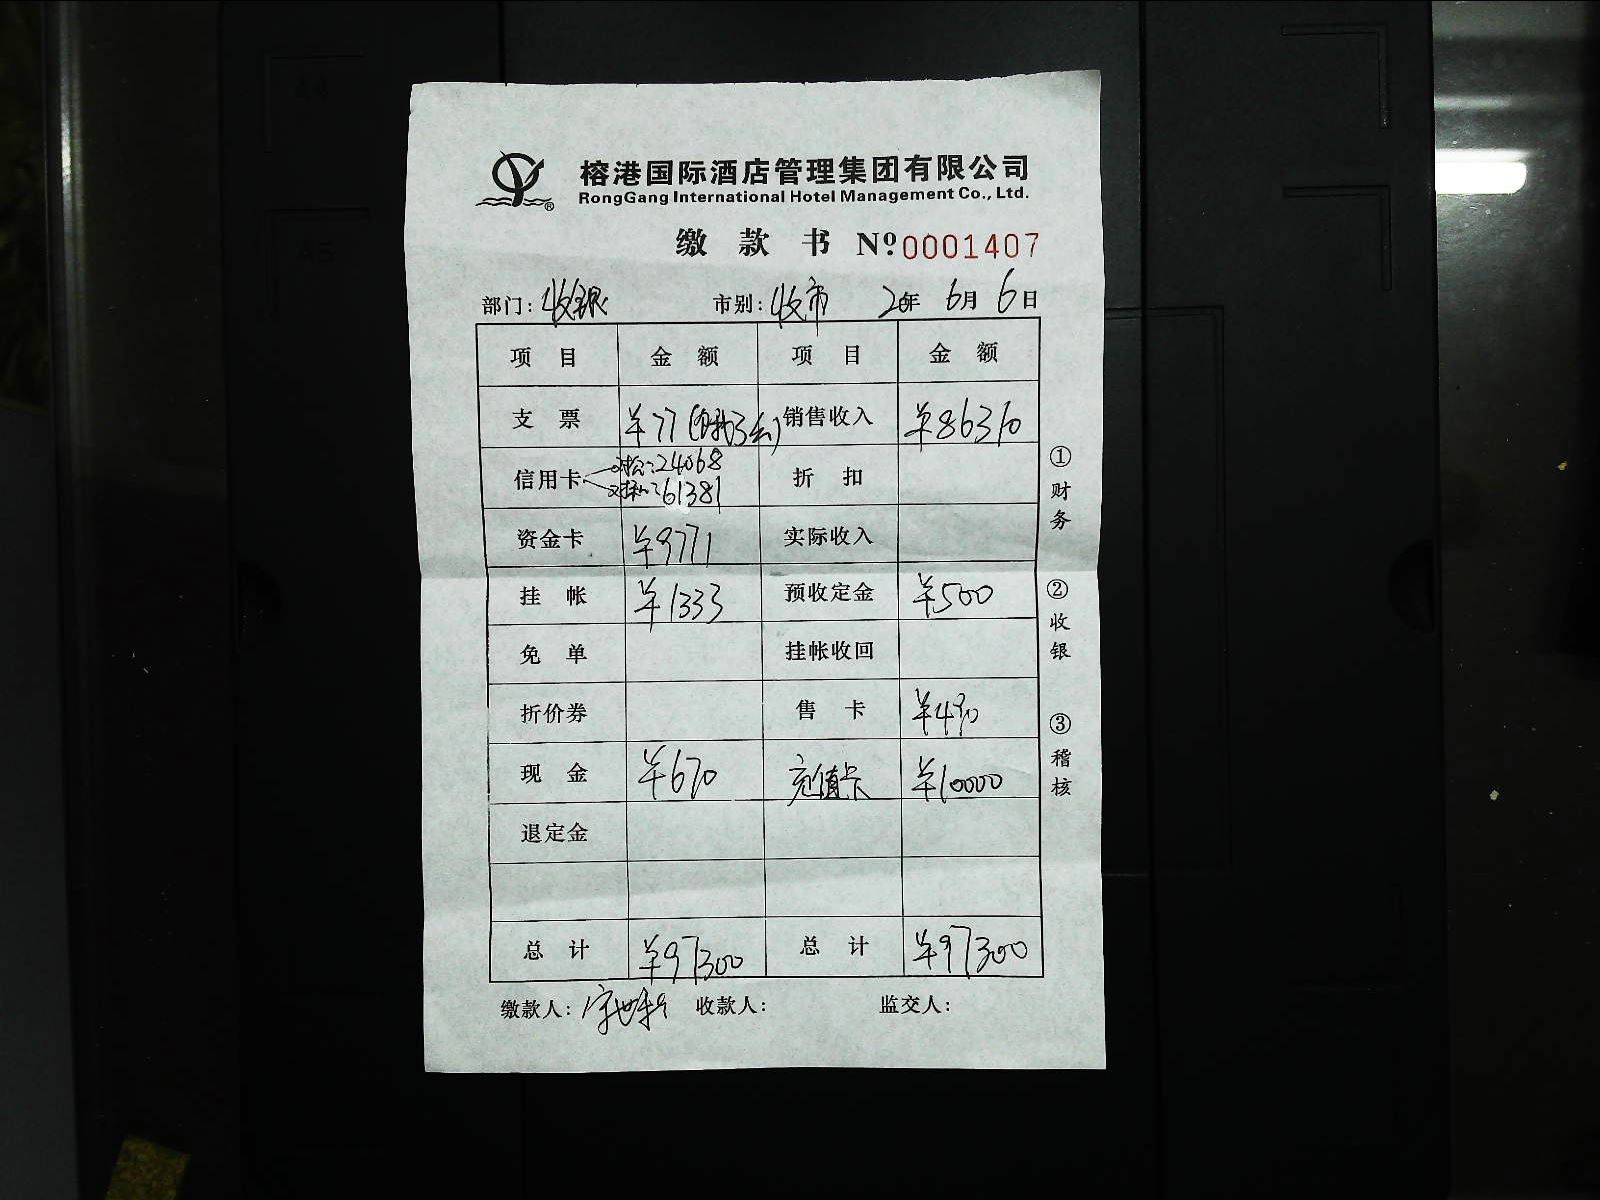 榕港国际酒店管理集团有限公司
RongGang International Hotel Management Co., Ltd.
缴 款 书 Nº 0001407
部门: 收银 市别: 收市 20年 6月 6日
项 目 金 额 项 目 金 额
支 票 ¥77 销售收入 ¥86310
信用卡 24068 61381 折 扣
资金卡 ¥9771 实际收入
挂 帐 ¥1333 预收定金 ¥500
免 单 挂帐收回
折价券 售 卡 ¥490
现 金 ¥670 充值卡 ¥10000
退定金
总 计 ¥97300 总 计 ¥97300
缴款人: 收款人: 监交人:
① 财务
② 收银
③ 稽核
®
A4
A5